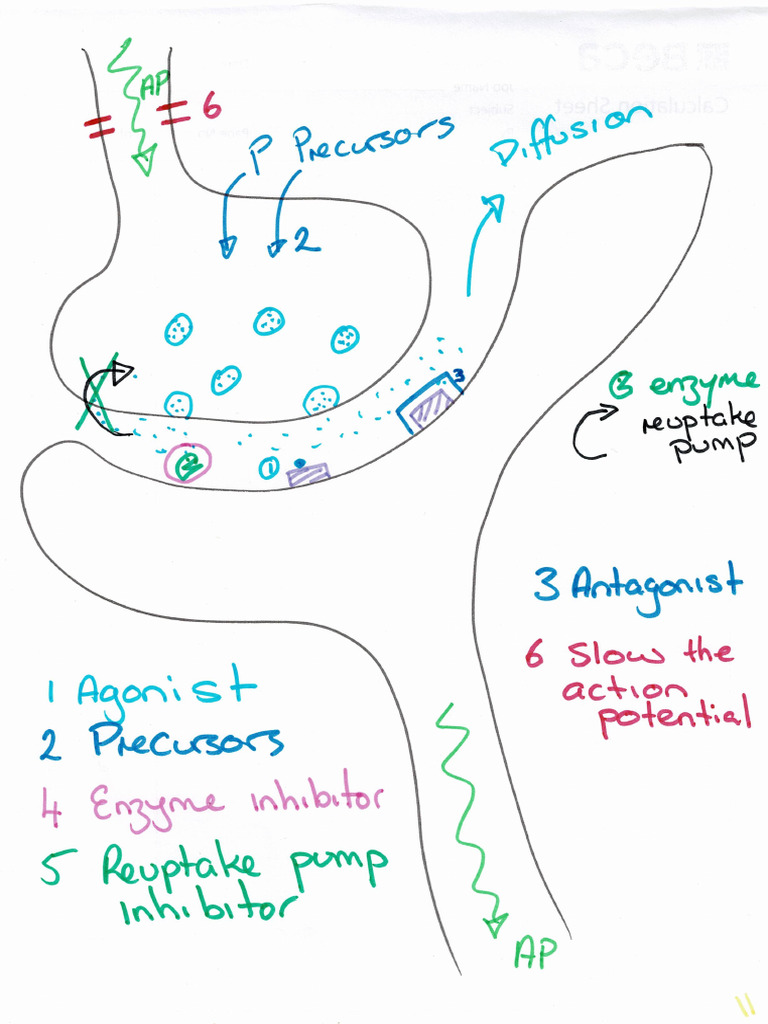 AP
6
P Precursors
Diffusion
2
3
2
1
2 enzyme
reuptake
pump
3 Antagonist
6 Slow the
action
potential
1 Agonist
2 Precursors
4 Enzyme inhibitor
5 Reuptake pump
inhibitor
AP